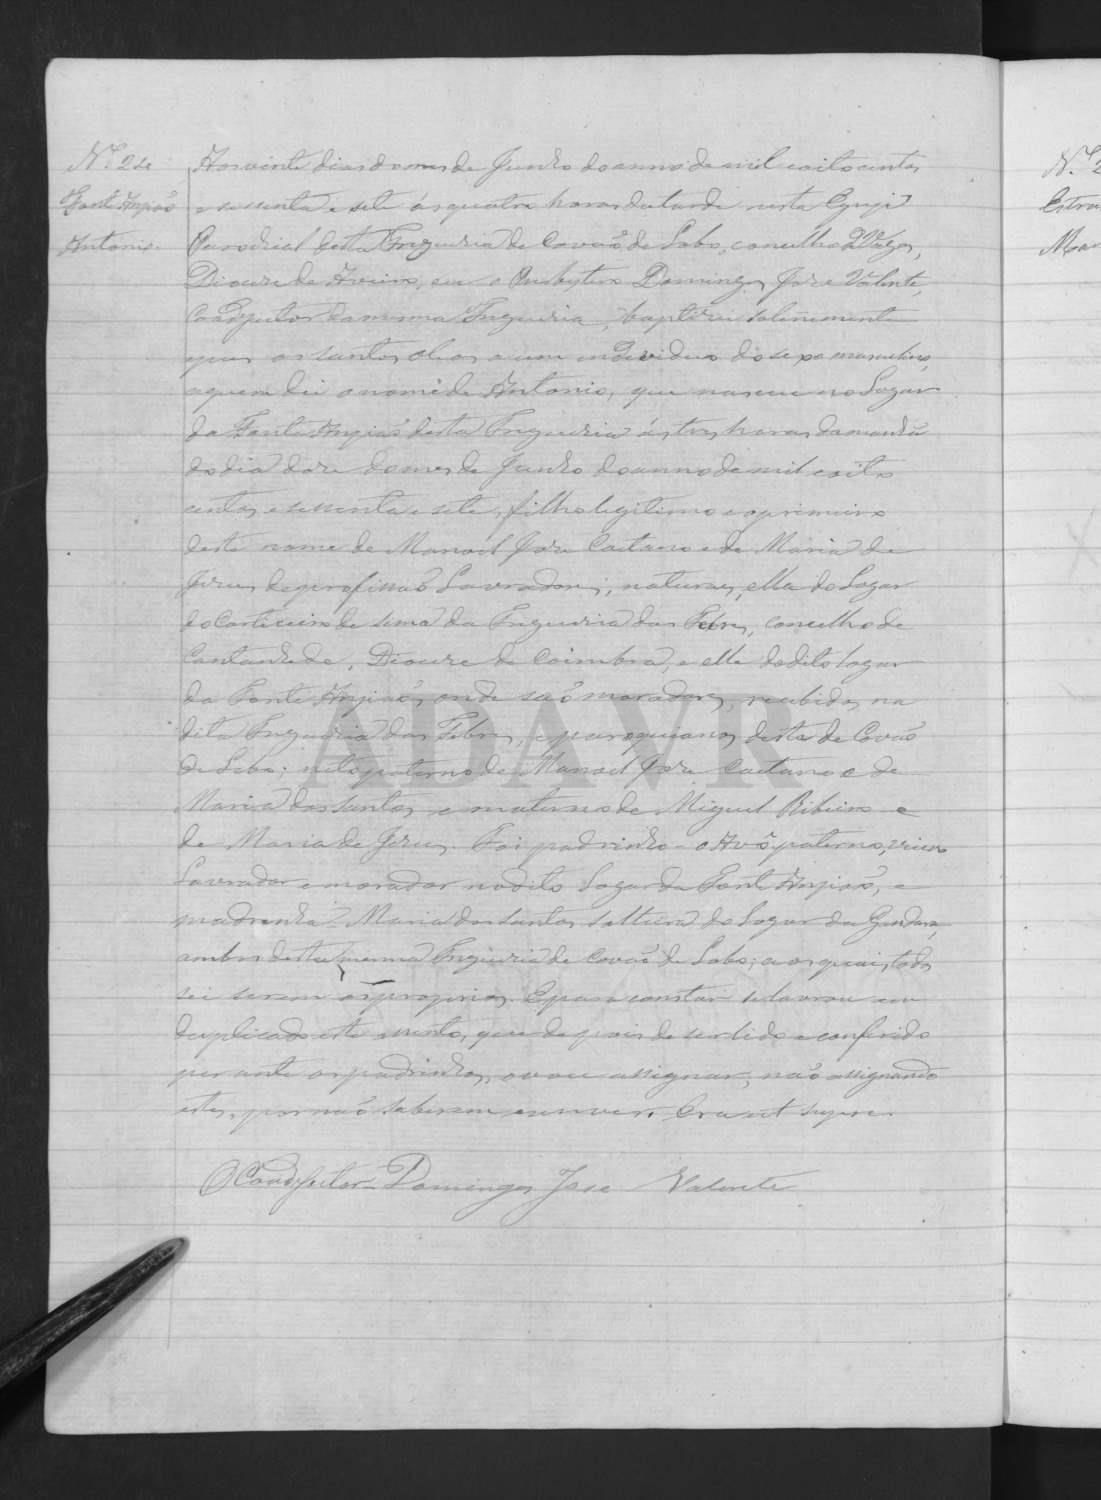 Nº 24
Fonte Angião
Antonio.
Aos vinte dias do mes de Junho do anno de mil e oito centos
e sessenta e sete ás quatro horas da tarde nesta Egreja
Parochial desta Freguezia de Covão de Lobo, concelho de Vagos,
Diocese de Aveiro, eu o Presbytero Domingos Jose Valente,
Coadjuctor da mesma Freguezia, baptizei solemnemente
e pus os santos oleos a um individuo do sexo masculino,
a quem dei o nome de Antonio, que nasceu no Logar
da Fonte Angião desta Freguezia ás tres horas da manhã
do dia doze do mes de Junho do anno de mil e oito
centos e sessenta e sete, filho legitimo e o primeiro
deste nome de Manoel Jose Caetano e de Maria de
Jezus de profissaõ Lavradores; naturaes, elle do Logar
do Corticeiro de sima da Freguezia das Febres, concelho de
Cantanhede, Diocese de Coimbra, e ella do dito logar
da Fonte Angião, onde saõ moradores, recebidos na
dita Freguezia das Febres, e paroquianos desta de Covaõ
de Lobo; neto paterno de Manoel Jose Caetano e de
Maria dos Santos e materno de Miguel Ribeiro e
de Maria de Jezus. Foi padrinho o Avô paterno,
Lavrador e morador no dito Logar da Fonte Angião, e
madrinha Maria dos Santos solteira do Logar da Gandara,
ambos desta mesma Freguezia de Covaõ de Lobo; aos quais todos
sei serem os proprios. E para constar se lavrou em
duplicado este assento, que depois de ser lido e conferido
perante os padrinhos, o vou assignar, naõ assignando
estes, por naõ saberem escrever. Era ut supra.
O Coadjuctor Domingos Jose Valente
Nº 2
Estra
Man
ADAVR